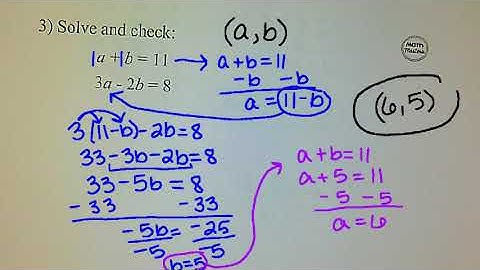 3) Solve and check:
(a,b)
a + b = 11
3a - 2b = 8
a+b=11
-b -b
a = 11-b
(6,5)
3(11-b)-2b=8
33-3b-2b=8
33-5b=8
-33 -33
-5b = -25
-5 -5
b=5
a+b=11
a+5=11
-5 -5
a=6